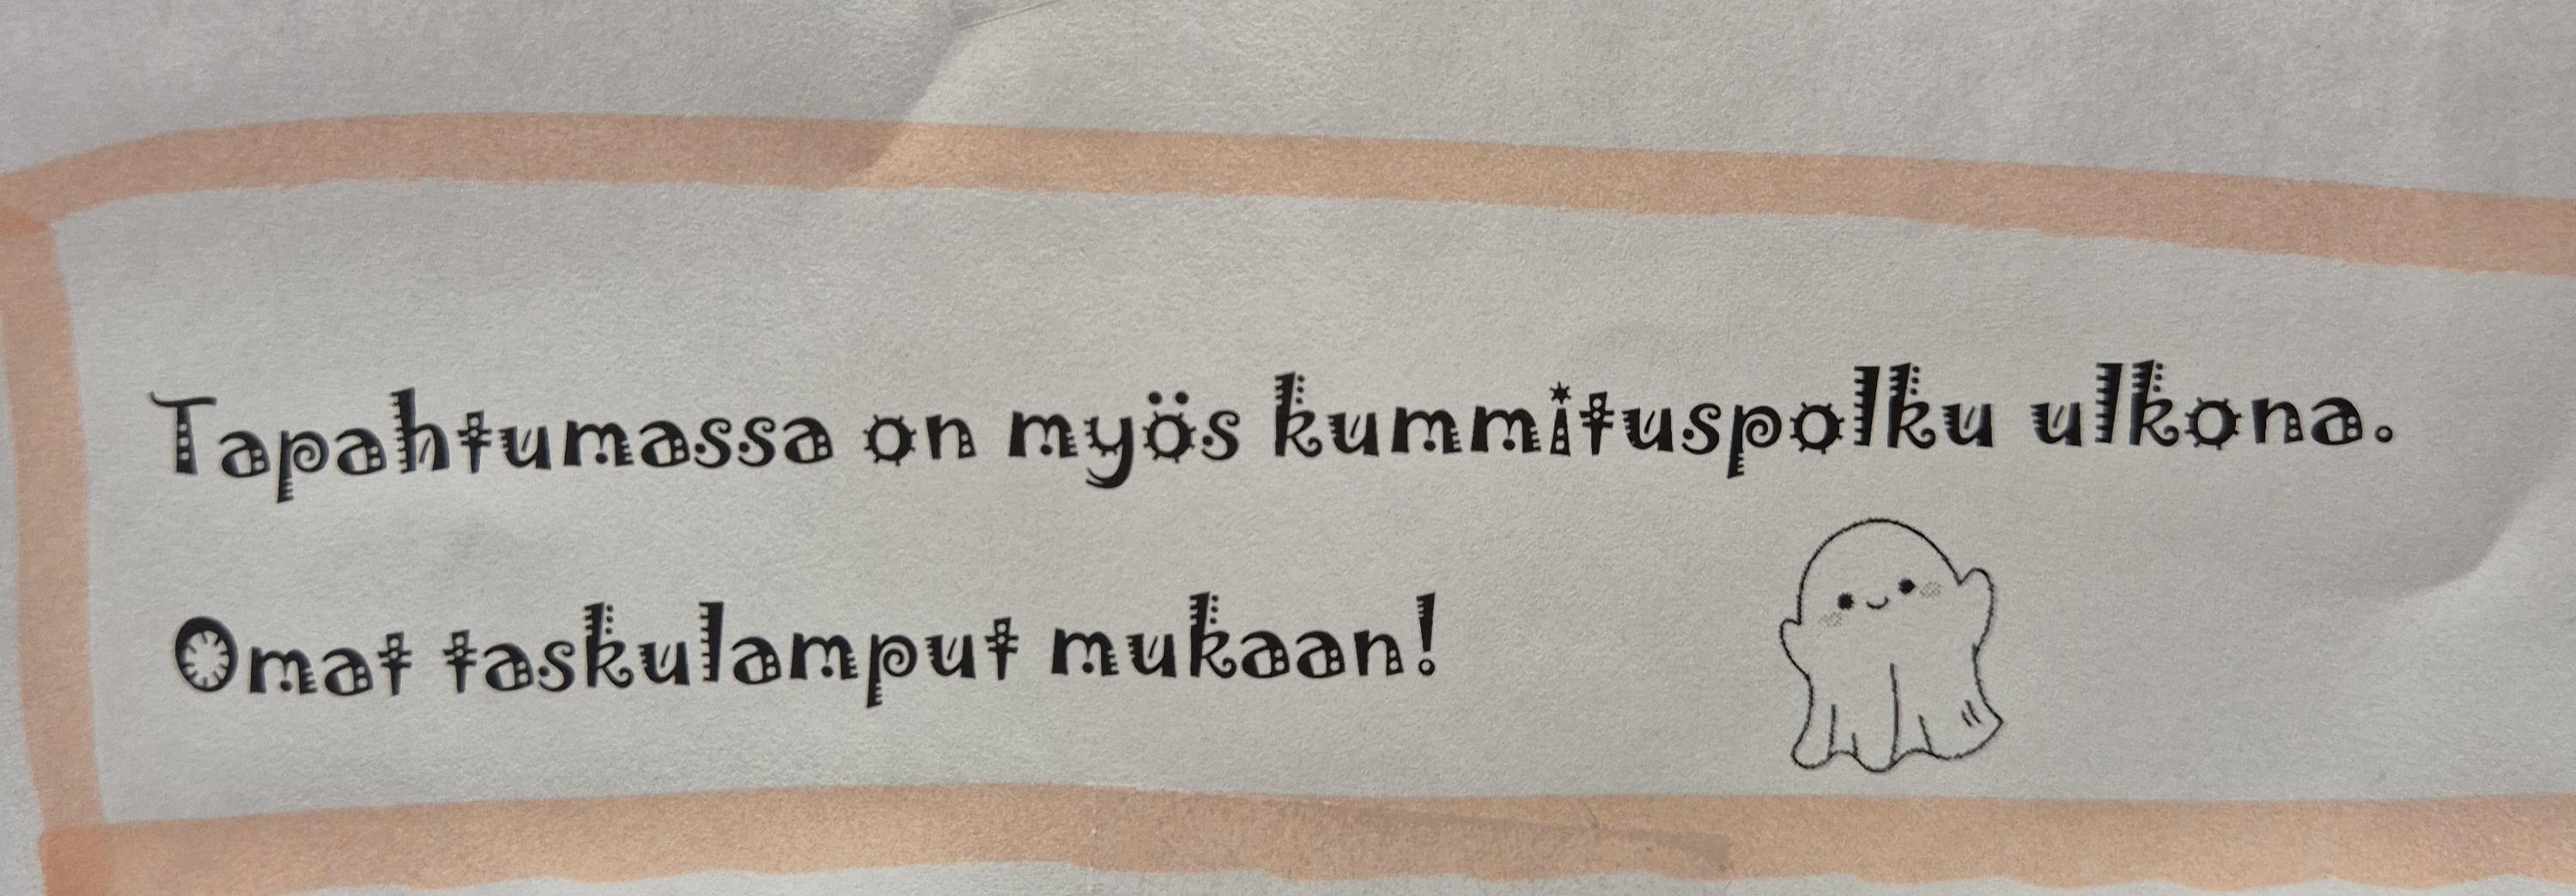 Tapahtumassa on myös kummituspolku ulkona.
Omat taskulamput mukaan!